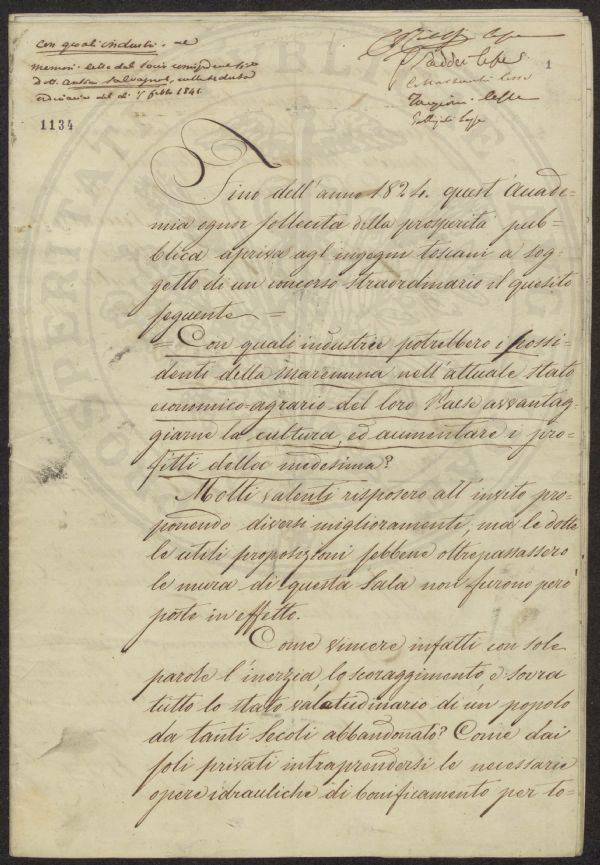 Con quali industrie ec
Memoria letta dal Socio corrispondente Sig.
Dott. Antonio Salvagnoli, nella seduta
ordinaria del dì 7 febb.º 1841.
1134
lesse
Raddi lesse
lesse
Targioni lesse
lesse
1
Fino dell'anno 1824. quest'Accade=
mia ognor sollecita della prosperità pub=
blica apriva agl'ingegni toscani a sog=
getto di un concorso straordinario il quesito
seguente =
= Con quali industrie potrebbero i possi=
denti della maremma nell'attuale stato
economico=agrario del loro Paese avvantag=
giarne la cultura, ed aumentare i pro=
fitti della medesima?
Molti valenti risposero all'invito pro=
ponendo diversi miglioramenti, ma le dotte
le utili proposizioni sebbene oltrepassassero
le mura di questa Sala non furono però
poste in effetto.
Come vincere infatti con sole
parole l'inerzia, lo scoraggimento, e sovra
tutto lo stato valetudinario di un popolo
da tanti secoli abbandonato? Come dai
soli privati intraprendersi le necessarie
opere idrauliche di bonificamento per to=
PROSPERITATI PUBLICAE